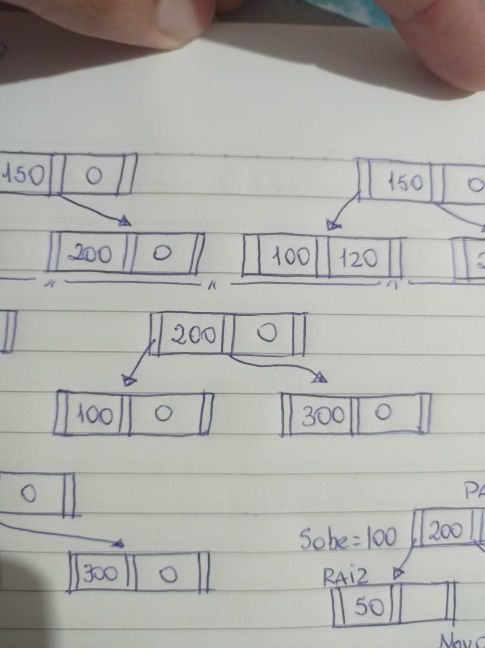 150 0 150 0
200 0 100 120
200 0
100 0 300 0
0
Sobe=100 200
300 0
RAIZ
50